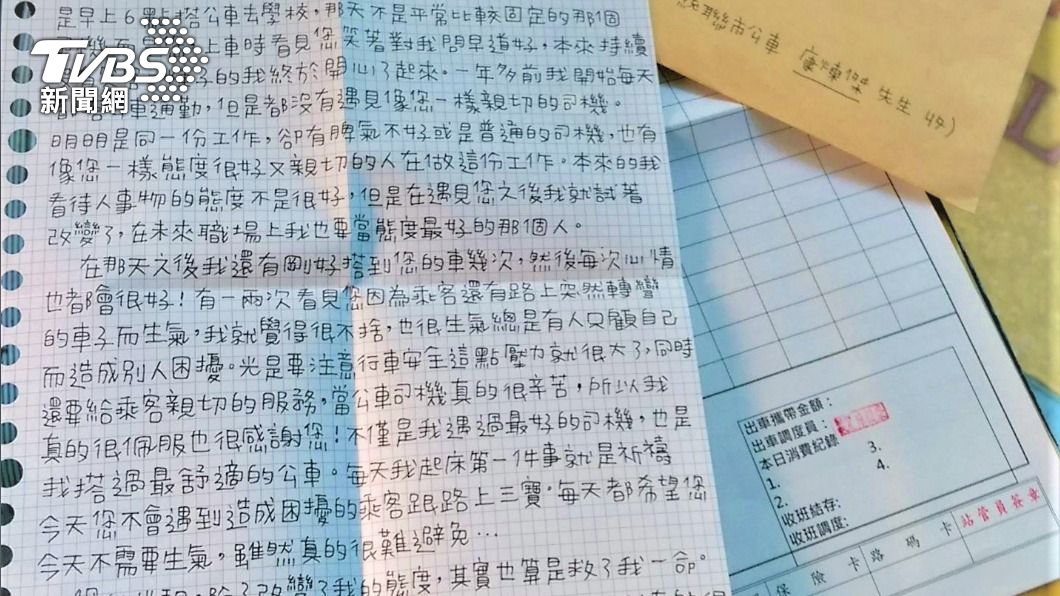 是早上6點搭公車去學校，那天不是平常比較固定的那個
上車時看見您笑著對我問早道好，本來持續
的我終於開心了起來。一年多前我開始每天
車通勤，但是都沒有遇見像您一樣親切的司機。
明明是同一份工作，卻有脾氣不好或是普通的司機，也有
像您一樣態度很好又親切的人在做這份工作。本來的我
看待人事物的態度不是很好，但是在遇見您之後我就試著
改變了，在未來職場上我也要當態度最好的那個人。
在那天之後我還有剛好搭到您的車幾次，然後每次心情
也都會很好！有一兩次看見您因為乘客還有路上突然轉彎
的車子而生氣，我就覺得很不捨，也很生氣總是有人只顧自己
而造成別人困擾。光是要注意行車安全這點壓力就很大了，同時
還要給乘客親切的服務，當公車司機真的很辛苦，所以我
真的很佩服也很感謝您！不僅是我遇過最好的司機，也是
我搭過最舒適的公車。每天我起床第一件事就是祈禱
今天您不會遇到造成困擾的乘客跟路上三寶。每天都希望您
今天不需要生氣，雖然真的很難避免…
除了改變了我的態度，其實也算是救了我一命。
TVBS
新聞網
統聯市公車 廖煉傑 先生 收)
出車攜帶金額：
出車調度員：
本日消費紀錄
1.
2.
3.
4.
收班結存：
收班調度：
保險卡
路碼卡
站管員簽章